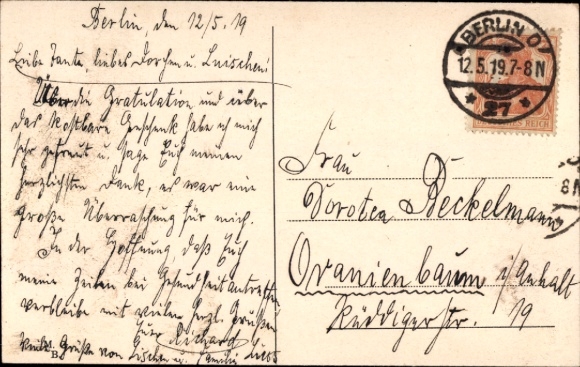 Berlin, den 12/5. 19
Liebe Tante, liebes Dorchen u. Luischen!
Über die Gratulation und über
das kostbare Geschenk habe ich mich
sehr gefreut u. sage Euch meinen
herzlichsten Dank, es war eine
große Überraschung für mich.
In der Hoffnung, daß Euch
meine Zeilen bei Gesundheit antreffen
verbleibe mit vielen herzl. Grüßen
Euer Richard
Grüße von Lischen u. Familie
B.
BERLIN O
12.5.19.7-8N
* 27 *
REICH
8N
Frau
Dorotea Beckelmann
Oranienbaum i/Anhalt
Rüddigerstr. 19